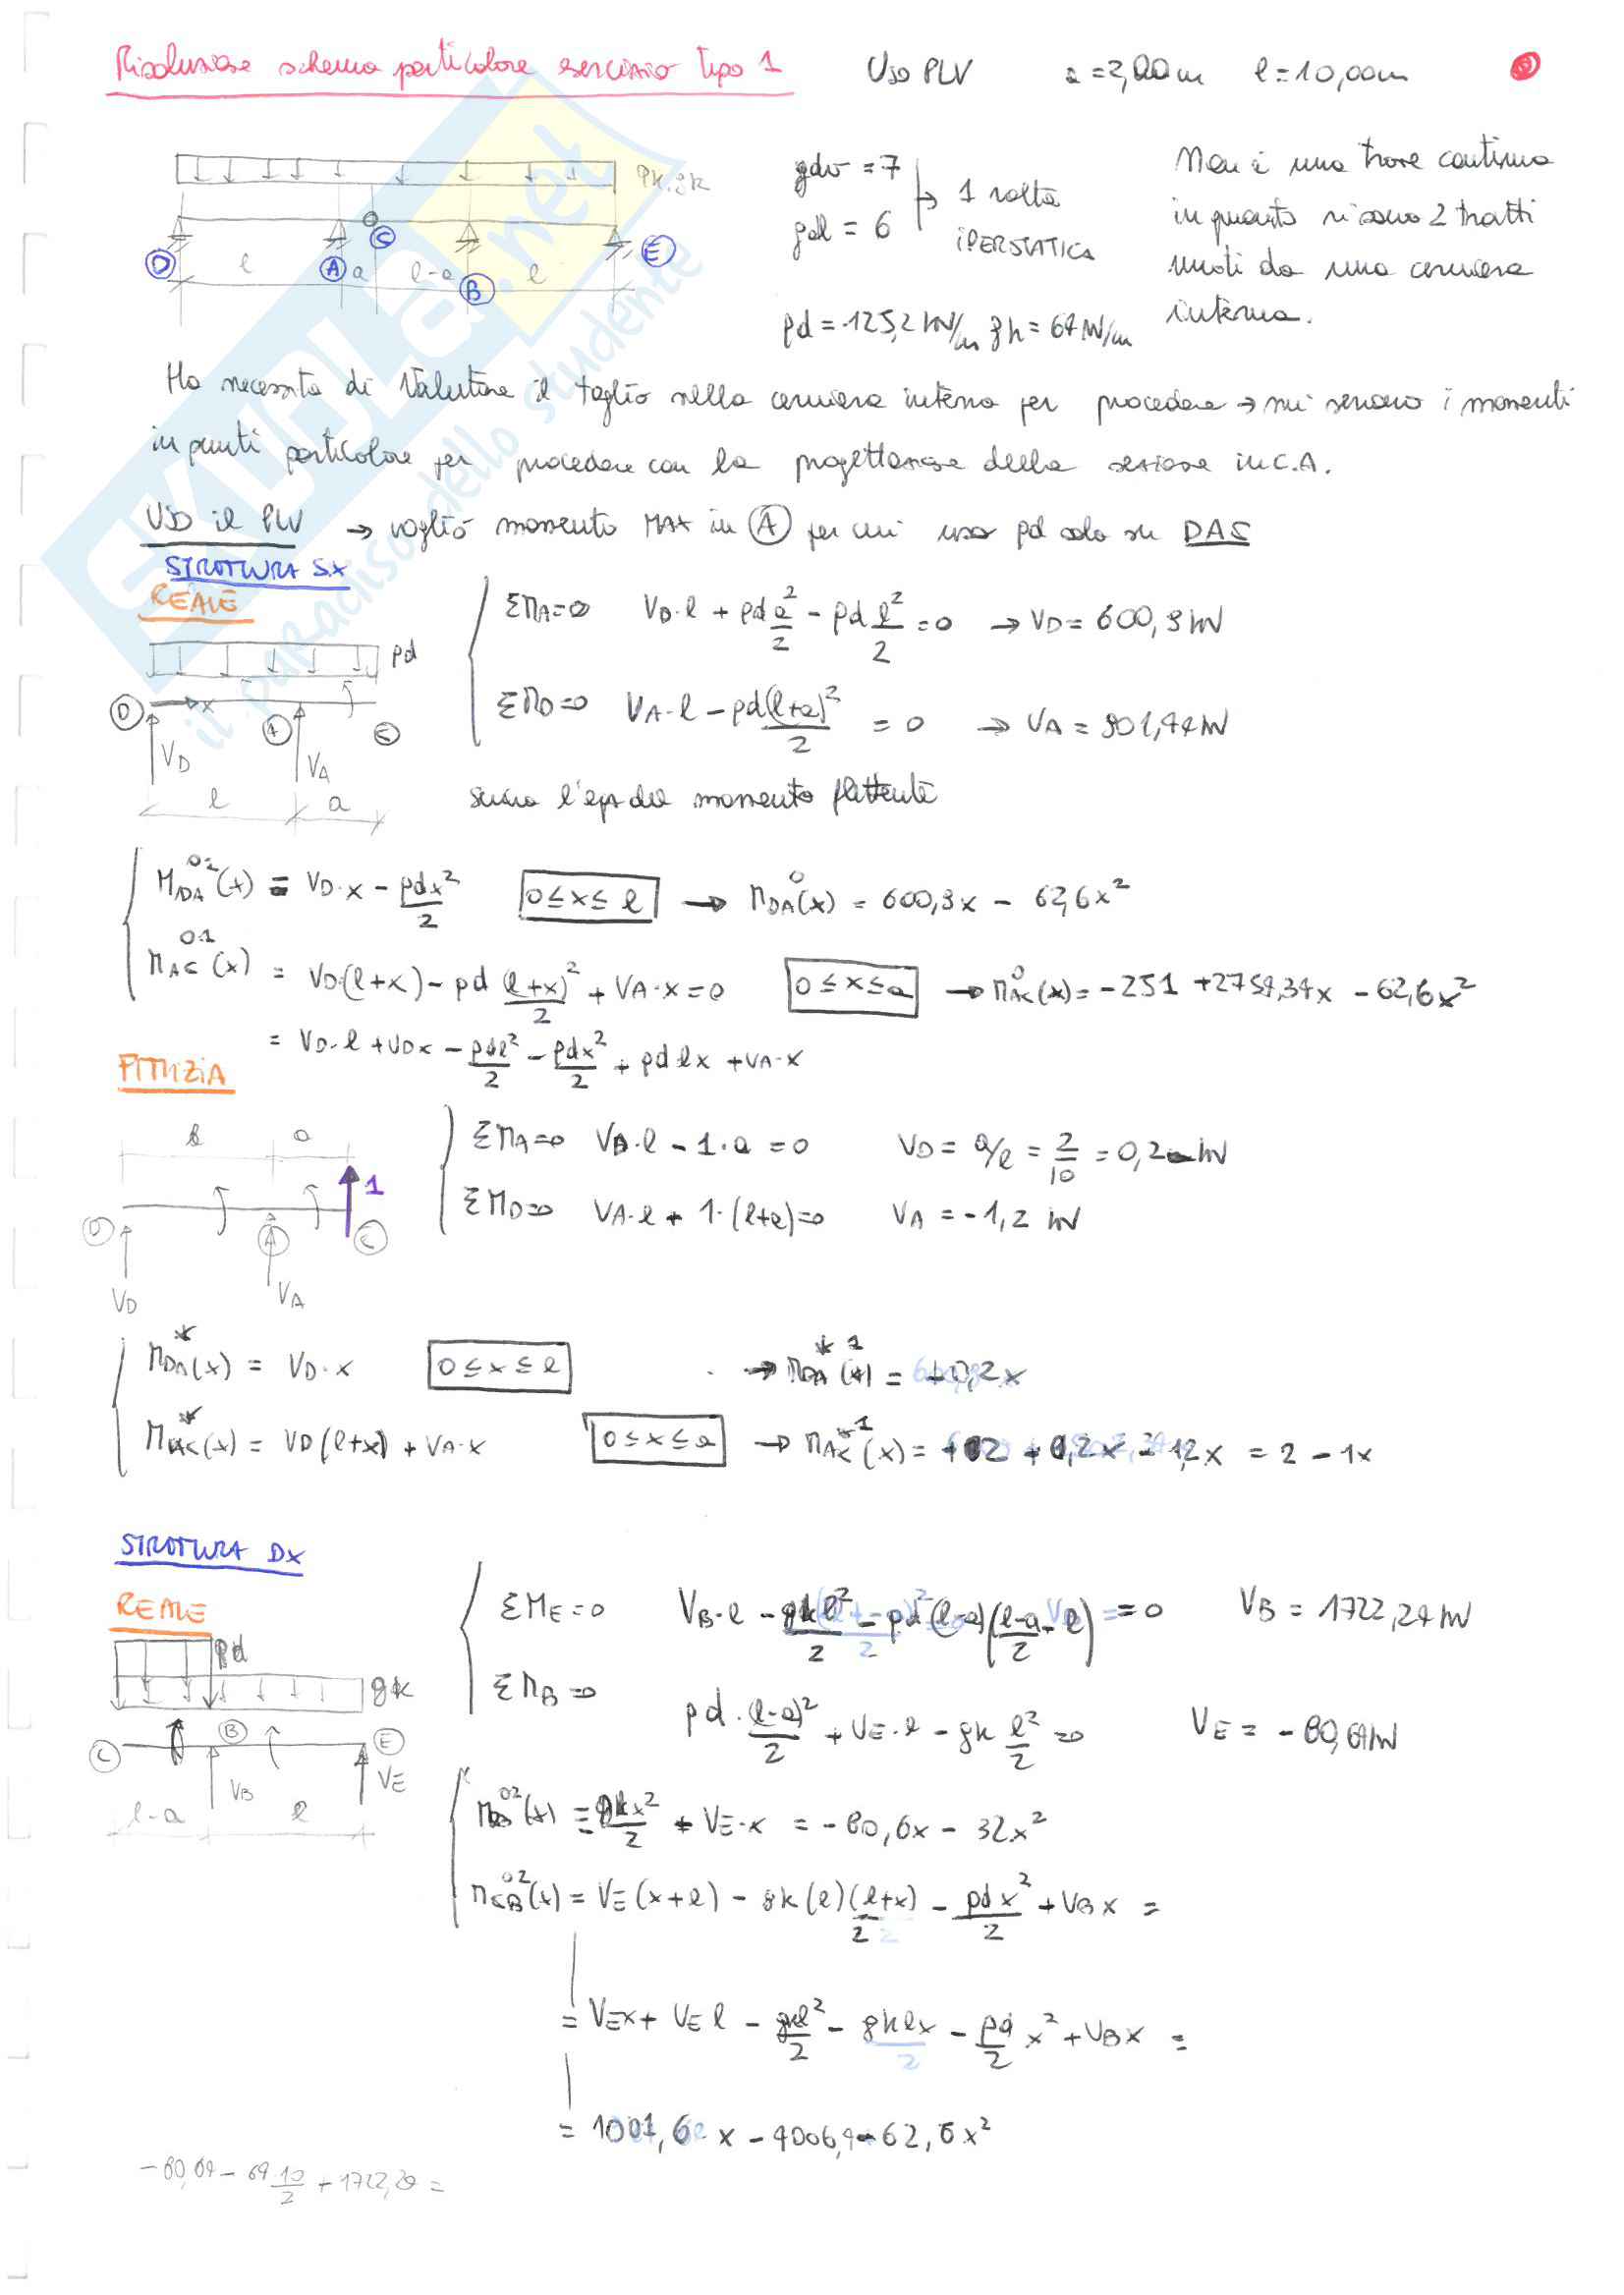 Risoluzione schema particolare esercizio tipo 1 Uso PLV a = 2,00m l = 10,00m
qk, gk
D A C B E
l a l-a l
gdv = 7
gdl = 6
1 volta
iPERSTATICA
pd = 125,2 kN/m gk = 64 kN/m
Non è una trave continua
in quanto ci sono 2 tratti
uniti da una cerniera
interna.
Ho necessità di Valutare il taglio nella cerniera interna per procedere → mi servono i momenti
in punti particolare per procedere con la progettazione della sezione in C.A.
USO il PLV → voglio momento MAX in A per cui uso pd solo su DAC
STRUTTURA SX
REALE
pd
D x A C
VD VA
l a
ΣMA=0 VD·l + pd a²/2 - pd l²/2 = 0 → VD = 600,9 kN
ΣMD=0 VA·l - pd(l+a)²/2 = 0 → VA = 901,44 kN
scrivo l'eq del momento flettente
MDA⁰¹(x) = VD·x - pdx²/2 0≤x≤l → MDA⁰(x) = 600,9x - 62,6x²
MAC⁰¹(x) = VD·(l+x) - pd (l+x)²/2 + VA·x = 0 0≤x≤a → MAC⁰(x) = -251 + 2754,34x - 62,6x²
= VD·l + VDx - pdl²/2 - pdx²/2 + pdlx + VA·x
FITTIZIA
l a
1
D A C
VD VA
ΣMA=0 VD·l - 1·a = 0 VD = a/l = 2/10 = 0,2 kN
ΣMD=0 VA·l + 1·(l+a)=0 VA = -1,2 kN
MDA*(x) = VD·x 0≤x≤l → MDA*¹(x) = +0,2x
MAC*(x) = VD(l+x) + VA·x 0≤x≤a → MAC*¹(x) = +02 + 0,2x - 1,2x = 2 - 1x
STRUTTURA DX
REALE
pd
gk
C B E
VB VE
l-a l
ΣME=0 VB·l - gkl²/2 - pd(l-a)(l-a/2 - l) = 0 VB = 1722,24 kN
ΣMB=0 pd·(l-a)²/2 + VE·l - gk l²/2 = 0 VE = -80,64 kN
⁰²(x) = gkx²/2 + VE·x = -80,6x - 32x²
MCB⁰²(x) = VE(x+l) - gk(l)(l+x)/2 - pdx²/2 + VBx =
= VEx + VEl - gkl²/2 - gklx/2 - pd/2 x² + VBx =
= 1001,6 x - 4006,4 - 62,6x²
-80,64 - 64·10/2 + 1722,24 =